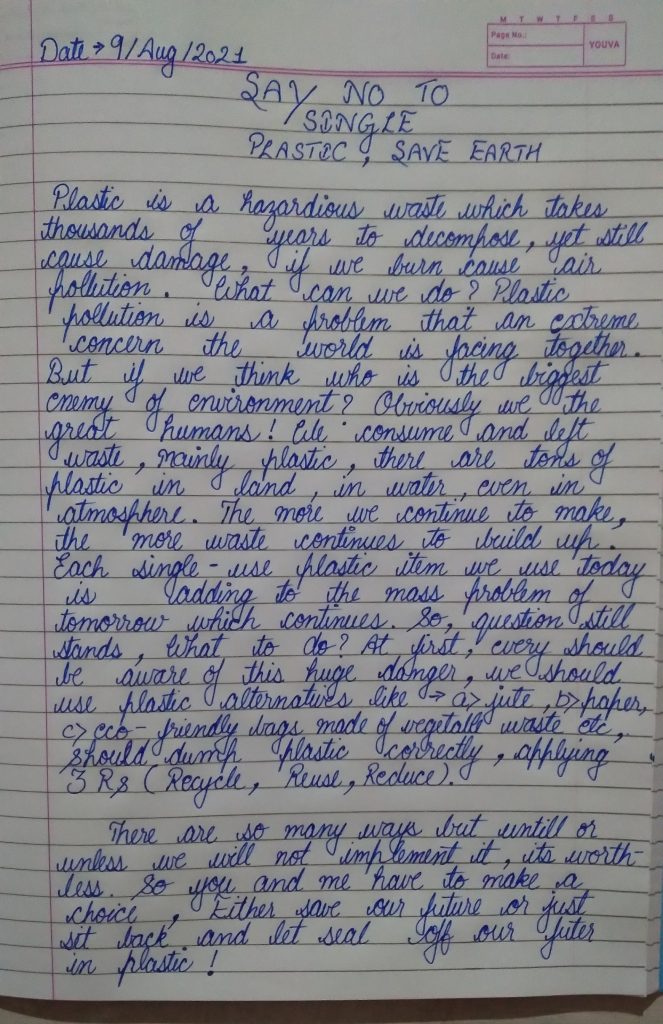 M T W T F S S
Page No.:
YOUVA
Date:
Date → 9/Aug/2021
SAY NO TO
SINGLE
PLASTIC, SAVE EARTH
Plastic is a hazardious waste which takes
thousands of years to decompose, yet still
cause damage, if we burn cause air
pollution. What can we do? Plastic
pollution is a problem that an extreme
concern the world is facing together.
But if we think who is the biggest
enemy of environment? Obviously we the
great humans! We consume and left
waste, mainly plastic, there are tons of
plastic in land, in water, even in
atmosphere. The more we continue to make,
the more waste continues to build up.
Each single-use plastic item we use today
is adding to the mass problem of
tomorrow which continues. So, question still
stands, What to do? At first, every should
be aware of this huge danger, we should
use plastic alternatives like → a> jute, b> paper,
c> eco-friendly bags made of vegetable waste etc,
should dump plastic correctly, applying
3 Rs (Recycle, Reuse, Reduce).
There are so many ways but untill or
unless we will not implement it, its worth-
less. So you and me have to make a
choice, Either save our future or just
sit back and let seal off our futer
in plastic!